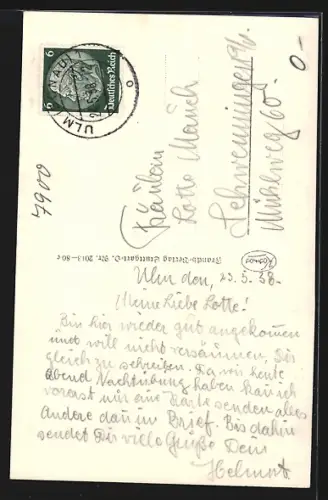 6 Deutsches Reich 6
ULM
7900
Fräulein
Lotte Mauch
Schwenningen a/N.
Mühleweg 60.
Verlag Stuttgart-O. Nr. 2013-80 c
Ulm den, 23.5.38.
Meine liebe Lotte!
Bin hier wieder gut angekommen
und will nicht versäumen, Dir
gleich zu schreiben. Da wir heute
abend Nachtübung haben kan ich
vorerst nur eine Karte senden alles
Andere dan im Brief. Bis dahin
sendet Dir viele Grüße Dein
Helmut